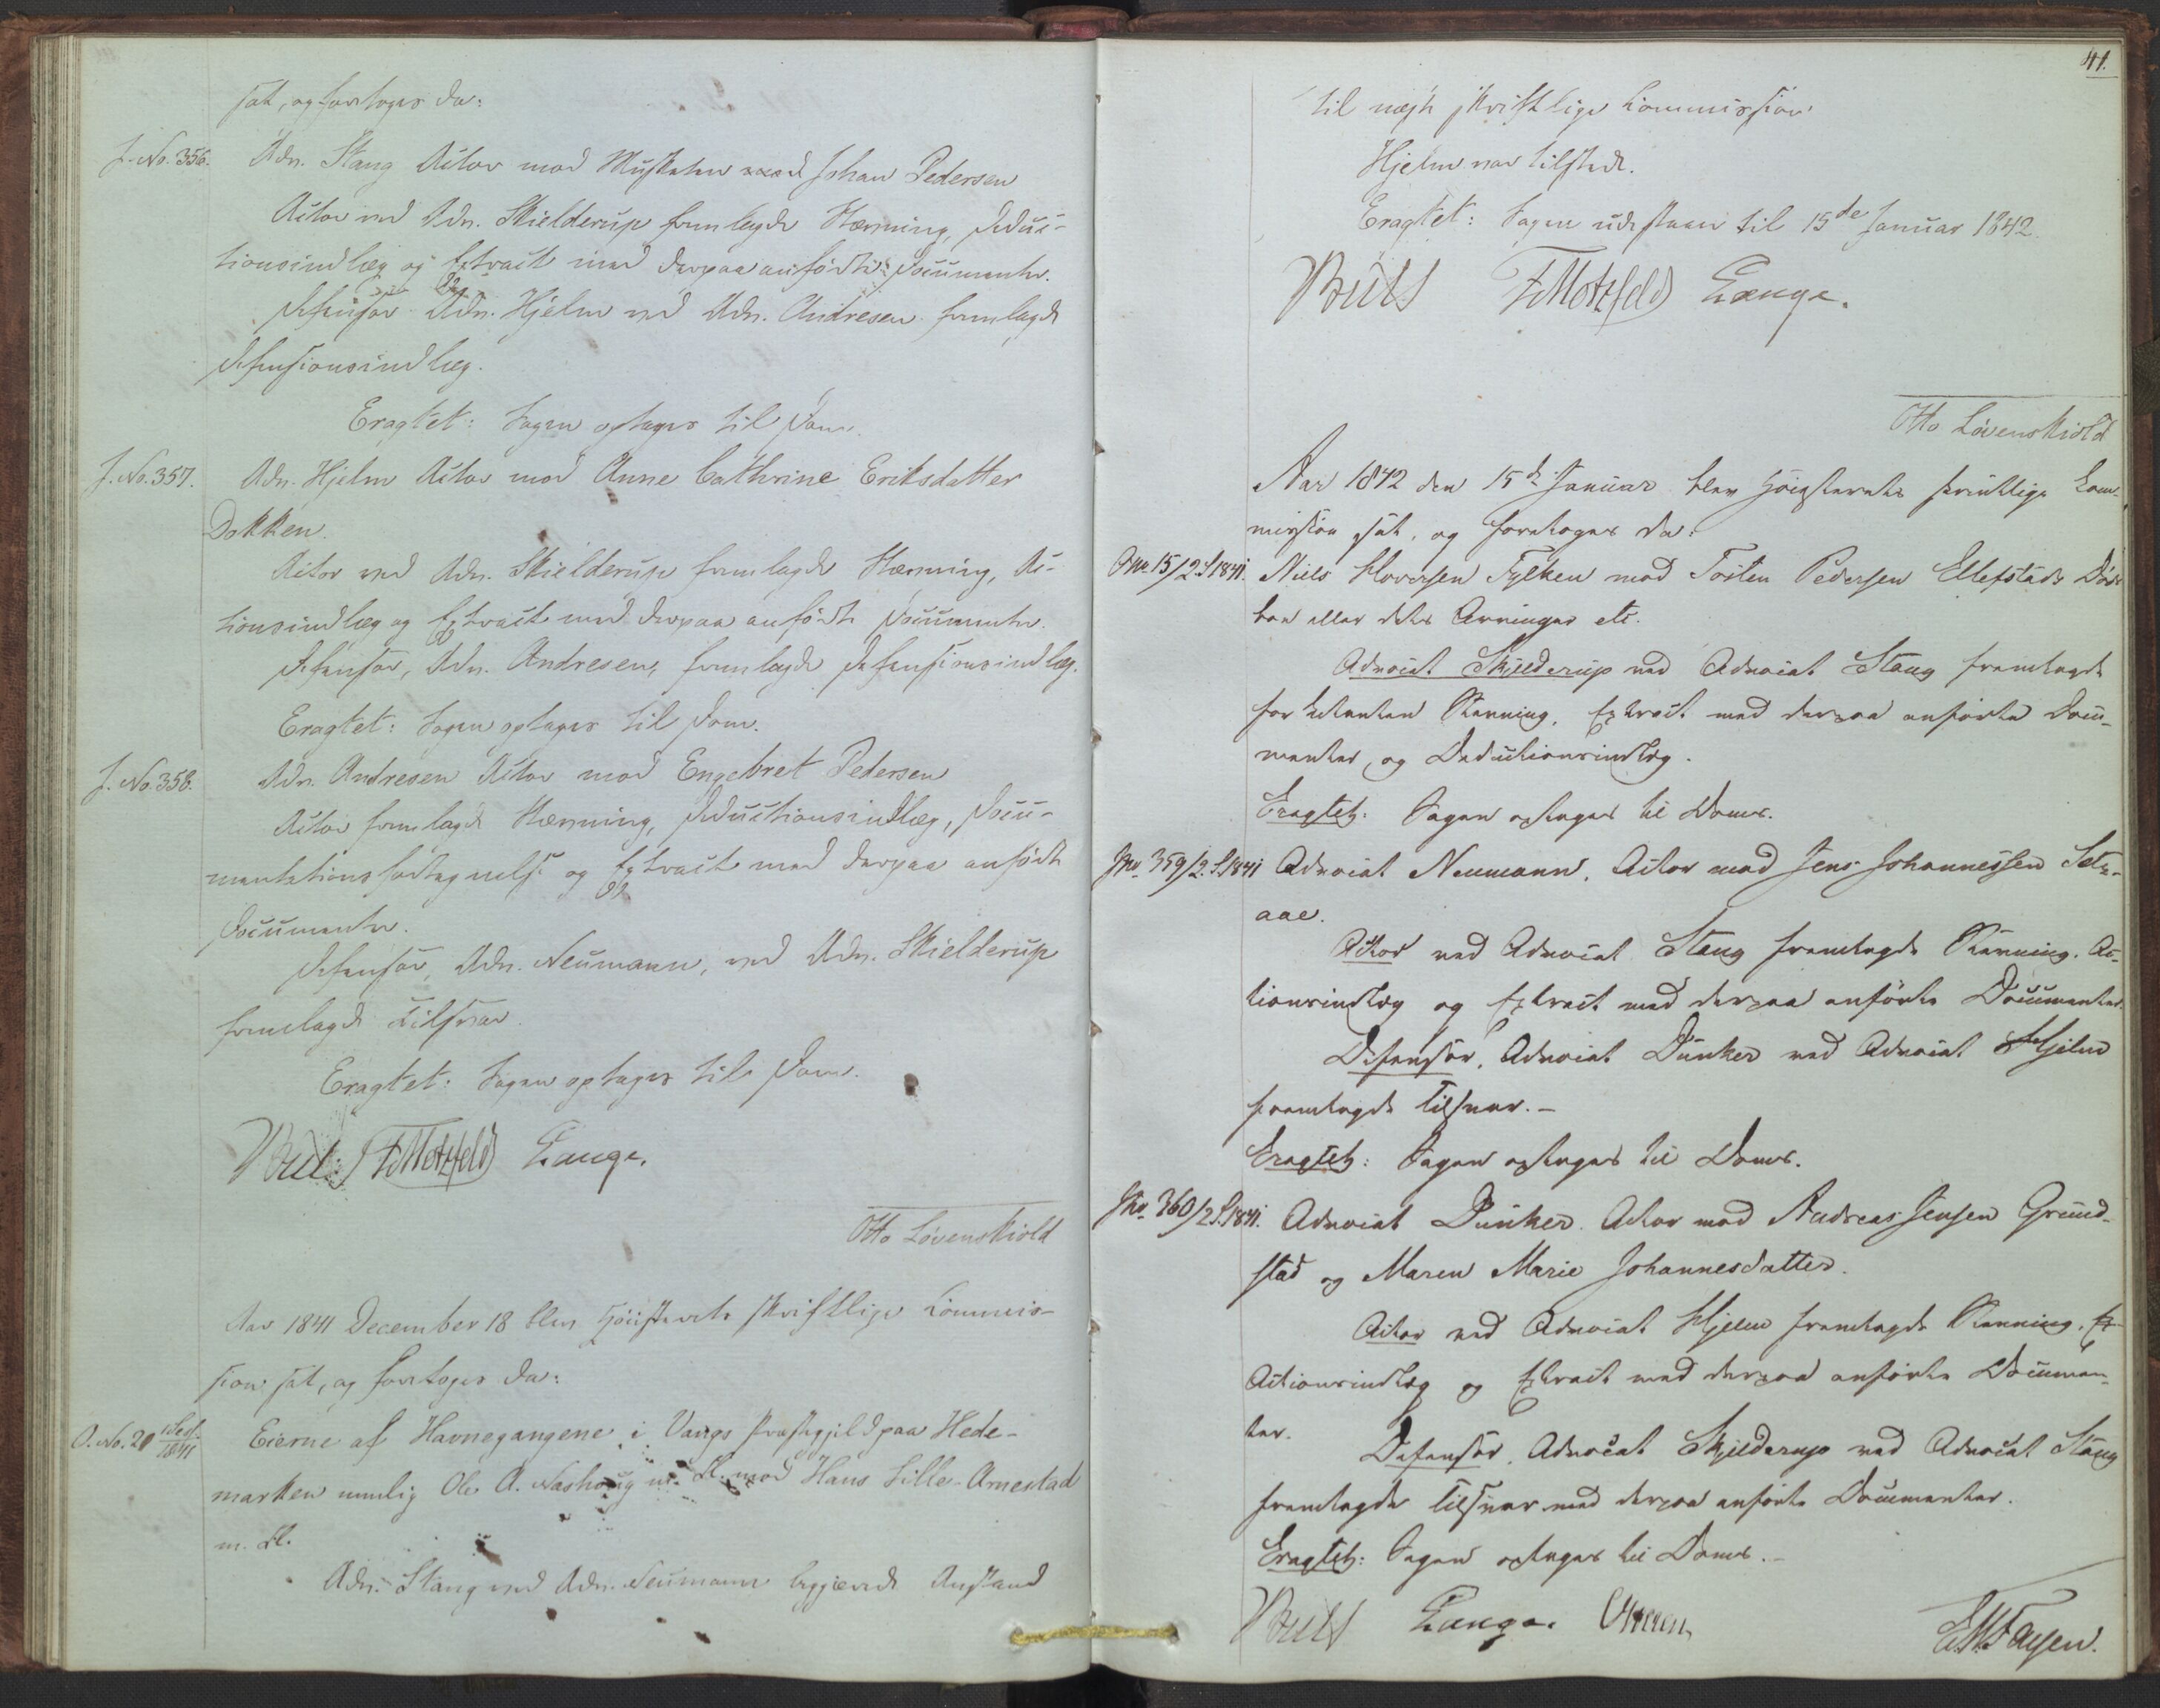 sat, og foretoges da:
J. No. 356. Adv. Stang Actor mod Musketeer Johan Pedersen
Actor ved Adv. Skielderup fremlagde Stævning, Deduc-
tionsindlæg og Extract med derpaa anførte Documenter.
Defensor Adv. Hjelm ved Adv. Andresen fremlagde
Defensionsindlæg.
Eragtet: Sagen optages til Dom.
J. No. 357. Adv. Hjelm Actor mod Anne Cathrine Eriksdatter
Dokken.
Actor ved Adv. Skielderup fremlagde Stævning, Ac-
tionsindlæg og Extract med derpaa anførte Documenter.
Defensor, Adv. Andresen, fremlagde Defensionsindlæg.
Eragtet: Sagen optages til Dom.
J. No. 358. Adv. Andresen Actor mod Engebret Pedersen
Actor fremlagde Stævning, Deductionsindlæg, Docu-
mentationsfortegnelse og Extract med derpaa anførte
Documenter.
Defensor, Adv. Neumann, ved Adv. Skielderup
fremlagde Tilsvar.
Eragtet: Sagen optages til Dom.
Bull. F Motzfeldt Lange.
Otto Løvenskiold
Aar 1841 December 18 blev Høiesterets skriftlige Commis-
sion sat, og foretoges da:
O. No. 20 1ste S. 1841 Eierne af Havnegangene i Vangs Præstegjeld paa Hede-
marken nemlig Ole A. Nashoug m. Fl. mod Hans Lille-Arnestad
m. Fl.
Adv. Stang ved Adv. Neumann begjerede Anstand
41.
til næste skriftlige Commission
Hjelm var tilstede.
Eragtet: Sagen udestaaer til 15de Januar 1842.
Bull F Motzfeldt Lange.
Otto Løvenskiold
Aar 1842 den 15de Januar blev Høiesterets skriftlige Com-
mission sat, og foretoges da:
O No 15/2 S 1841. Niels Hoversen Tylken mod Tosten Pedersen Ellefstads Døds-
boe eller dets Arvinger etc.
Advocat Skjelderup ved Advocat Stang fremlagde
for Citanten Stævning, Extract med derpaa anførte Docu-
menter, og Deductionsindlæg.
Eragtet: Sagen optages til Doms.
J No 359/2. S. 1841 Advocat Neumann, Actor mod Jens Johannessen Sæt-
aae.
Actor ved Advocat Stang fremlagde Stævning, Ac-
tionsindlæg og Extract med derpaa anførte Documenter.
Defensor, Advocat Dunker ved Advocat Hjelm
fremlagde Tilsvar. –
Eragtet: Sagen optages til Doms.
J No. 360/2 S. 1841. Advocat Dunker Actor mod Andreas Jensen Grund-
stad og Maren Marie Johannesdatter.
Actor ved Advocat Hjelm fremlagde Stævning,
Actionsindlæg og Extract med derpaa anførte Documen-
ter.
Defensor, Advocat Skjelderup ved Advocat Stang
fremlagde Tilsvar med derpaa anførte Documenter.
Eragtet: Sagen optages til Doms. –
Bull Lange.